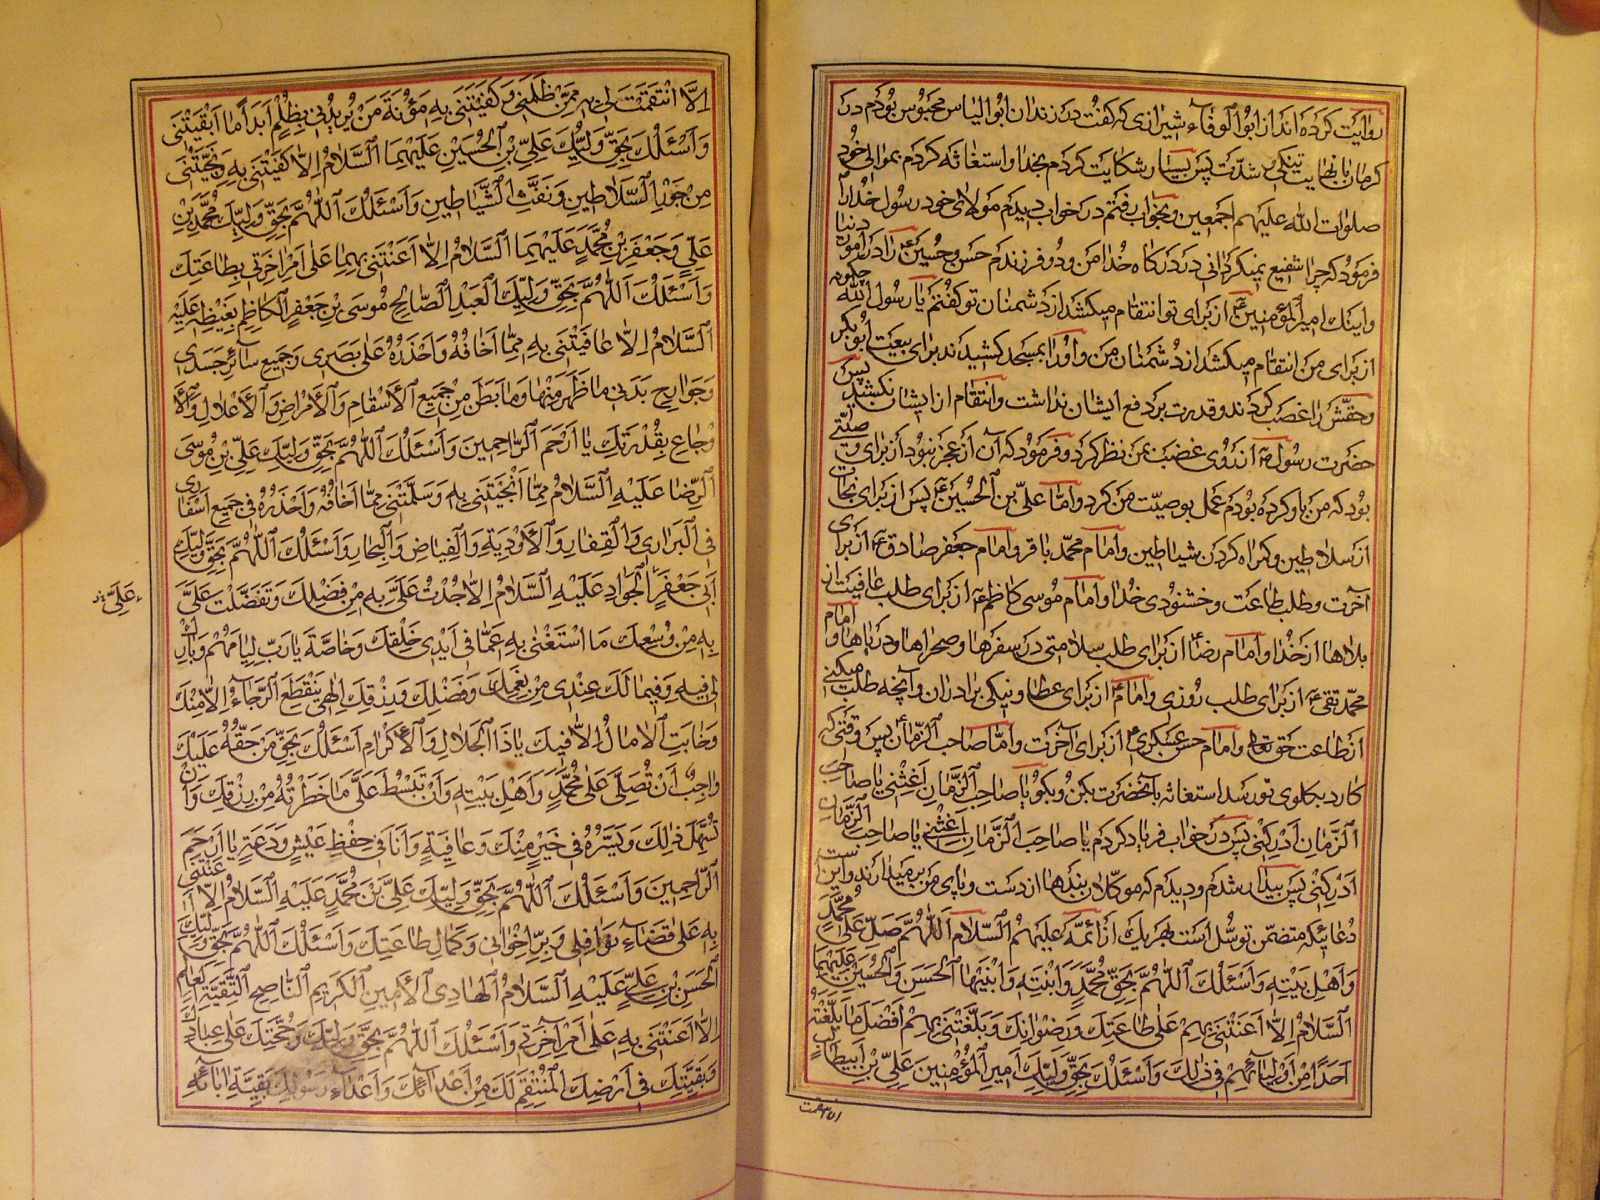 روایت کرده اند از ابو الوفاء شیرازی که گفت در زندان ابو الیاس محبوس بودم در
کرمان با نهایت تنگی و شدّت پس بسیار شکایت کردم بخدا و استغاثه کردم بموالی خود
صلوات اللّه علیهم اجمعین و بخواب رفتم در خواب دیدم مولای خود رسول خدا را
فرمود که چرا شفیع نمیگردانی در درگاه خدا من و دو فرزندم حسن و حسین را در امور دنیا
و اینک امیر المؤمنین از برای تو انتقام میکشد از دشمنان تو گفتم یا رسول اللّه چگونه
از برای من انتقام میکشد از دشمنان من و او را بمسجد کشیدند برای بیعت ابو بکر
و حقّش را غصب کردند و قدرت بر دفع ایشان نداشت و انتقام از ایشان نکشید پس
حضرت رسول از روی غضب بمن نظر کرد و فرمود که آن از عجز نبود از برای وصیّتی
بود که من باو کرده بودم عمل بوصیّت من کرد و امّا علیّ بن الحسین پس از برای نجات
از سلاطین و گمراه کردن شیاطین و امام محمّد باقر و امام جعفر صادق از برای
آخرت و طلب طاعت و خشنودی خدا و امام موسی کاظم از برای طلب عافیت از
بلاها از خدا و امام رضا از برای طلب سلامتی در سفرها و صحراها و دریاها و امام
محمّد تقی از برای طلب روزی و امام از برای عطا و نیکی برادران و آنچه طلب میکنی
از طاعت حق تعالی و امام حسن عسکری از برای آخرت و امّا صاحب الزّمان پس وقتی که
کارد بگلوی تو رسد استغاثه بآنحضرت بکن و بگو یا صاحب الزّمان اغثنی یا صاحب
الزّمان ادرکنی پس در خواب فریاد کردم یا صاحب الزّمان اغثنی یا صاحب الزّمان
ادرکنی پس بیدار شدم و دیدم که موکّلان بندها از دست و پای من بر میدارند و این است
دعائیکه متضمّن توسّل است بهر یک از ائمّه علیهم السّلام اللّهمّ صلّ علی محمّد
و اهل بیته و اسئلک اللّهمّ بحقّ محمّد و ابنته و ابنیها الحسن و الحسین علیهما
السّلام الّا اعنتنی بهم علی طاعتک و رضوانک و بلّغتنی بهم افضل ما بلّغته
احدا من اولیائهم فی ذلک و اسئلک بحقّ ولیّک امیر المؤمنین علیّ بن ابیطالب
الّا انتقمت لی به ممّن ظلمنی و کفیتنی به مؤنة من یریدنی بظلم ابدا ما ابقیتنی
و اسئلک بحقّ ولیّک علیّ بن الحسین علیهما السّلام الّا کفیتنی به و نجّیتنی
من جور السّلاطین و نفث الشّیاطین و اسئلک اللّهمّ بحقّ ولیّک محمّد بن
علیّ و جعفر بن محمّد علیهما السّلام الّا اعنتنی بهما علی امر اخرتی بطاعتک
و اسئلک اللّهمّ بحقّ ولیّک العبد الصّالح موسی بن جعفر الکاظم بغیظه علیه
السّلام الّا عافیتنی به ممّا اخافه و احذره علی بصری و جمیع سآئر جسدی
و جوارح بدنی ما ظهر منها و ما بطن من جمیع الأسقام و الأمراض و الأعلال و الأ
وجاع بقدرتک یا ارحم الرّاحمین و اسئلک اللّهمّ بحقّ ولیّک علیّ بن موسی
الرّضا علیه السّلام ممّا انجیتنی به و سلّمتنی ممّا اخافه و احذره فی جمیع اسفاری
فی البراری و القفار و الأودیة و الفیاض و البحار و اسئلک اللّهمّ بحقّ ولیّک
ابی جعفر الجواد علیه السّلام الّا جدت علیّ به من فضیلک و تفضّلت علیّ
علیّ
به من وسعک ما استغنی به عمّا فی ایدی خلقک و خاصّة یا ربّ لیامهم و بارک
لی فیه و فیما لک عندی من نعمک و فضلک و رزقک الهی ینقطع الرّجآء الّا منک
و خابت الامال الّا فیک یا ذا الجلال و الأکرام اسئلک بحقّ من حقّه علیک
واجب ان تصلّی علی محمّد و اهل بیته و ان تبسط علیّ ما خطرته من رزقک و ان
تسهّل ذلک و تیسّره فی خیر منک و عافیة و انا فی حفظ عیش و دعة یا ارحم
الرّاحمین و اسئلک اللّهمّ بحقّ ولیّک علیّ بن محمّد علیه السّلام الّا اعنتنی
به علی قضآء نوافلی و برّ اخوانی و کمال طاعتک و اسئلک اللّهمّ بحقّ ولیّک
الحسن بن علیّ علیه السّلام الهادی الأمین الکریم النّاصح الثّقة العالم
الّا اعنتنی به علی امر آخرتی و اسئلک اللّهمّ بحقّ ولیّک و حجّتک علی عبادک
و بقیّتک فی ارضک المنتقم لک من اعدآئک و اعدآء رسولک بقیّة ابآئه